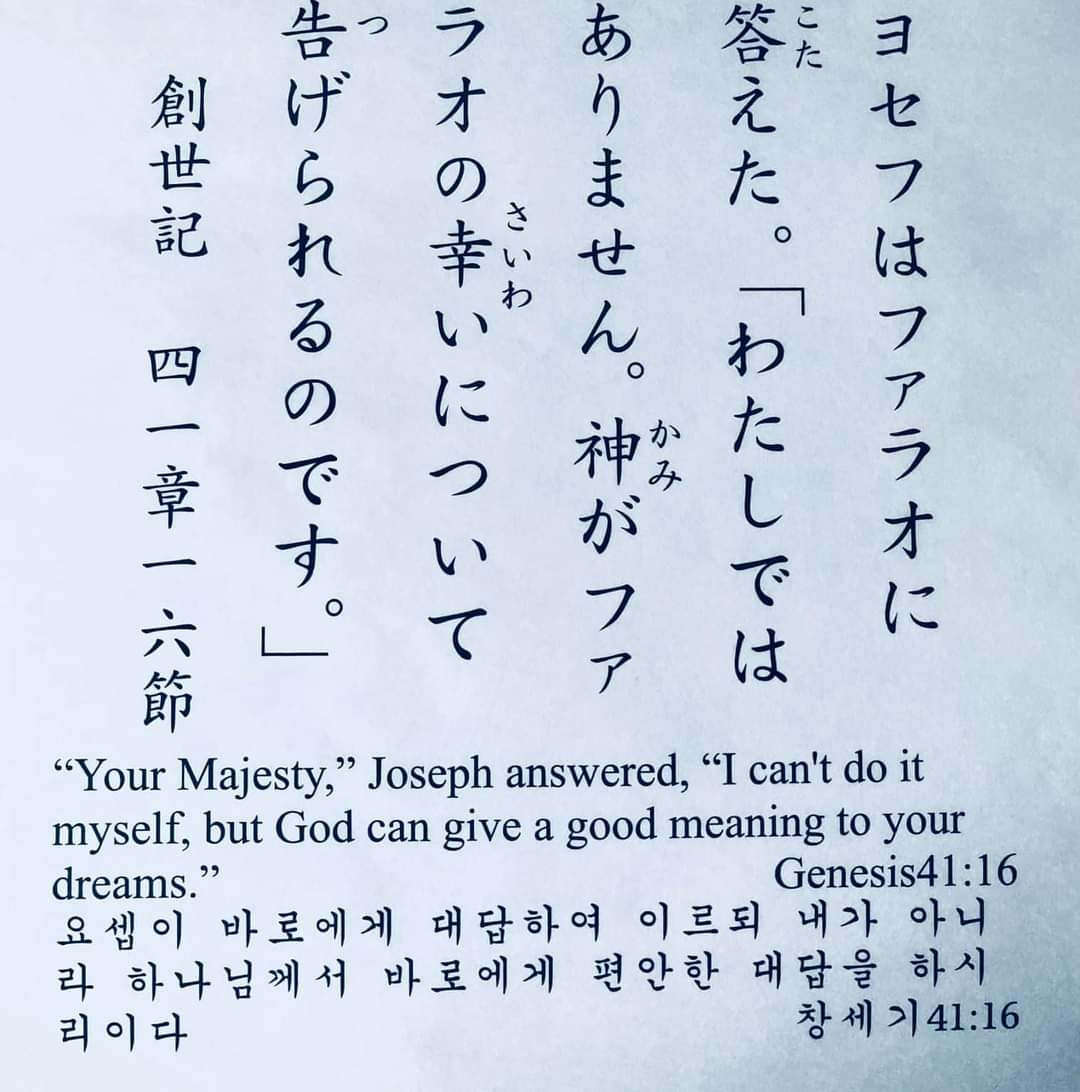 ヨセフはファラオに
答えた。「わたしでは
ありません。神がファ
ラオの幸いについて
告げられるのです。」
創世記 四一章一六節
こた
かみ
さいわ
つ
“Your Majesty,” Joseph answered, “I can't do it
myself, but God can give a good meaning to your
dreams.” Genesis41:16
요셉이 바로에게 대답하여 이르되 내가 아니
라 하나님께서 바로에게 편안한 대답을 하시
리이다 창세기41:16